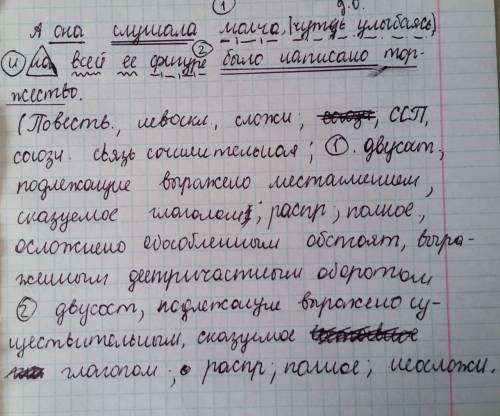 ① д.о.
А она слушала молча, |чуть улыбаясь,|
и на всей ее фигуре ② было написано тор-
жество.
(Повеств., невоскл, сложн; ССП,
союзн. связь сочинительная; ①. двусост,
подлежащие выражено местоимением,
сказуемое глаголом; распр; полное,
осложнено обособленным обстоят, выра-
женным деепричастным оборотом
② двусост, подлежащие выражено су-
ществительным, сказуемое
глаголом; распр; полное; неосложн.